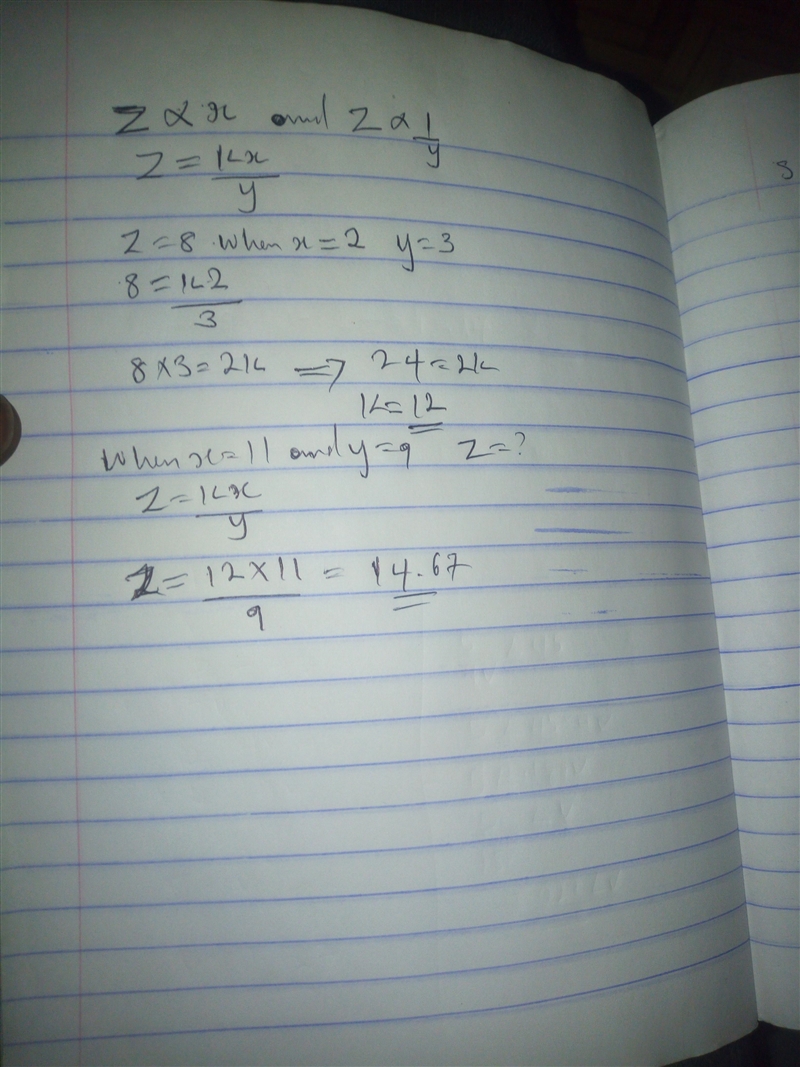 Z ∝ x and Z ∝ 1/y
Z = Kx/y
Z = 8 when x = 2 y = 3
8 = K2/3
8 × 3 = 2K ⇒ 24 = 2K
K = 12
When x = 11 and y = 9 Z = ?
Z = Kx/y
Z = 12 × 11/9 = 14.67